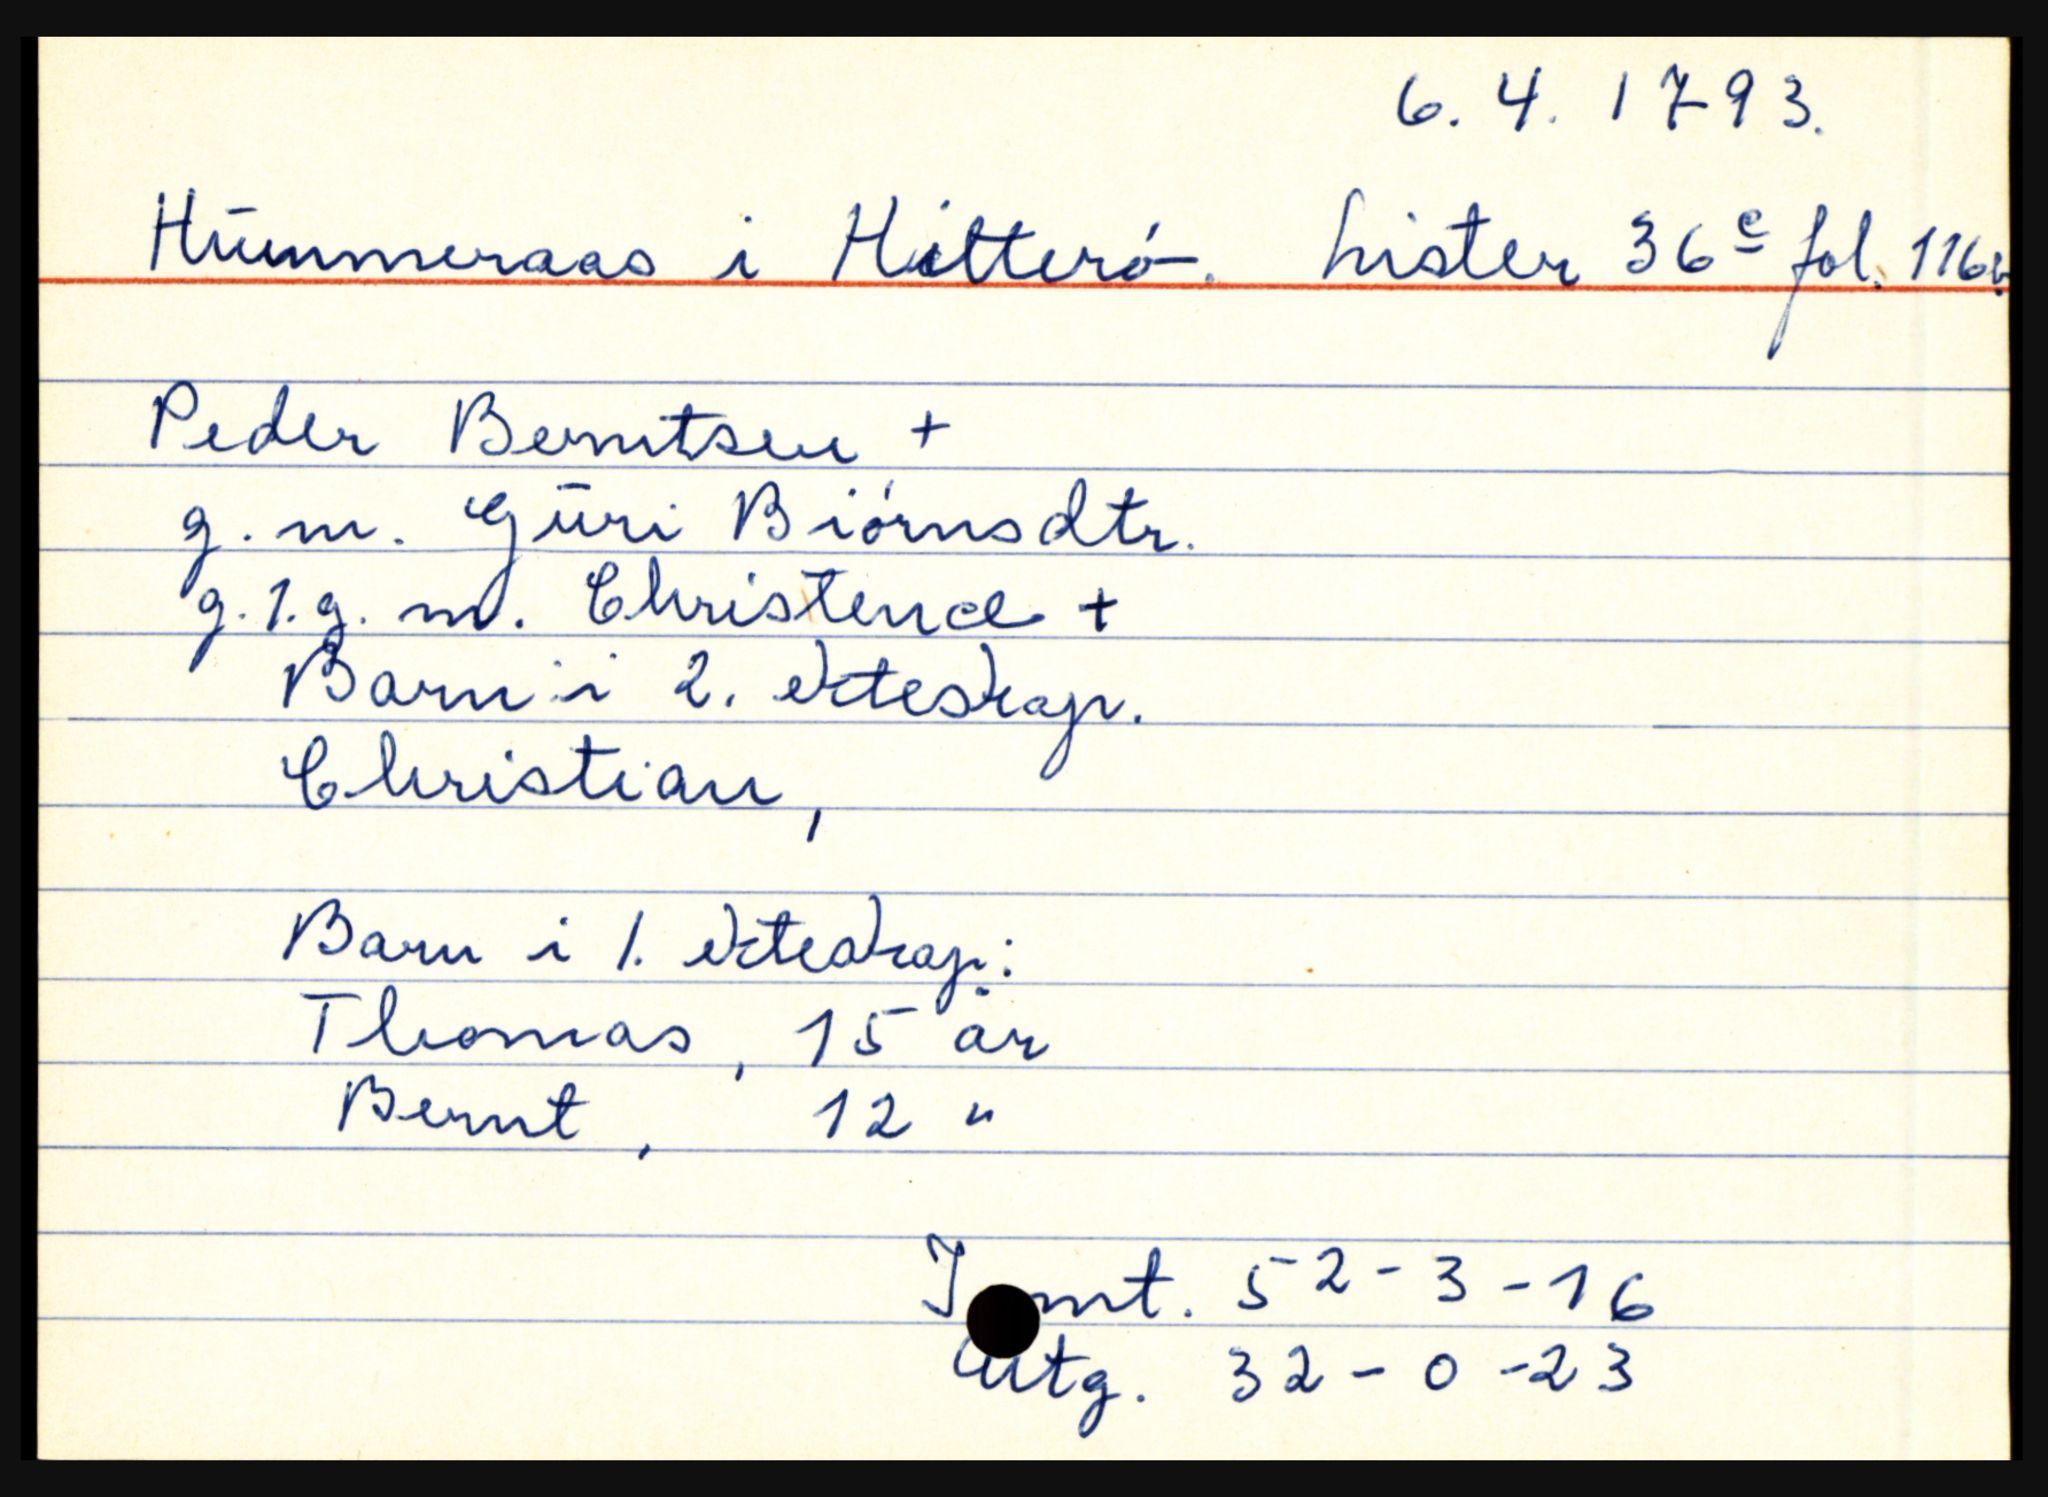 6. 4. 1793.
Hūmmeraas i Hitteró. Lister 36c fol. 116b.
Peder Berntsen +
g. m. Gūri Biórnsdtr.
g. 1. g. m. Christence +
Barn i 2. ekteskap.
Christian,
Barn i 1. ekteskap:
Thomas, 15 år
Bernt, 12 "
Innt. 52-3-16
Utg. 32-0-23